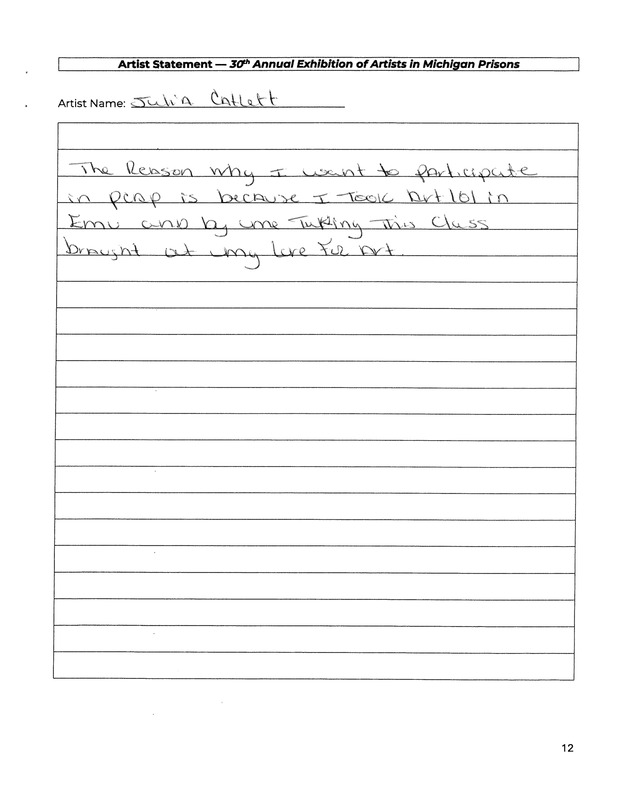 Artist Statement — 30th Annual Exhibition of Artists in Michigan Prisons
Artist Name: Julia Catlett
The Reason why I want to participate
in pcap is because I Took Art 101 in
Emu and by me Taking This Class
brought out my love For Art.
12